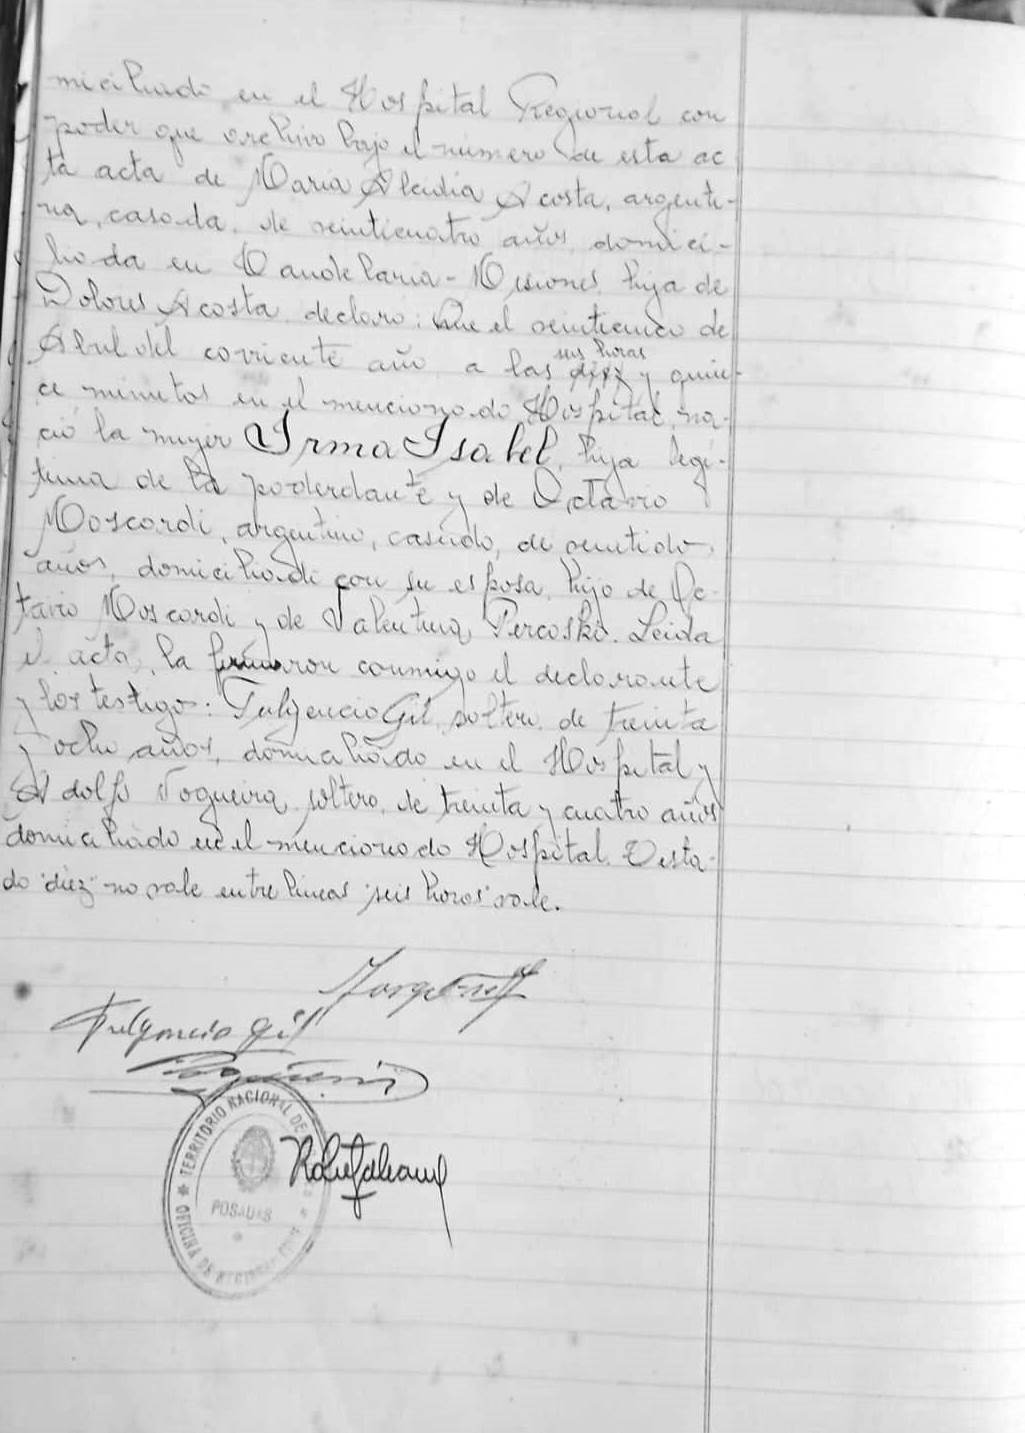 miciliado en el Hospital Regional con
poder que archivo bajo el número de esta ac
ta acta de Maria Alcidia Acosta, argenti-
na, casada, de veinticuatro años, domici-
liada en Candelaria - Misiones, hija de
Dolores Acosta, declaro: Que el veinticinco de
Abril del corriente año a las diez y quin-
seis horas
ce minutos en el mencionado Hospital, na-
ció la mujer Irma Isabel, hija legí-
tima de la poderdante y de Octavio
Moscardi, argentino, casado, de veintidos
años, domiciliado con su esposa, hijo de Oc-
tavio Moscardi y de Valentina Percoski. Leida
el acta, la firmaron conmigo el declarante
y los testigo: Fulgencio Gil, soltero, de treinta
y ocho años, domiciliado en el Hospital y
Adolfo Nogueira, soltero, de treinta y cuatro años
domiciliado en el mencionado Hospital. Testa-
do "diez" no vale entre lineas "seis horas" vale.
Fulgencio Gil
TERRITORIO NACIONAL DE
POSADAS
OFICINA DE REGISTRO CIVIL